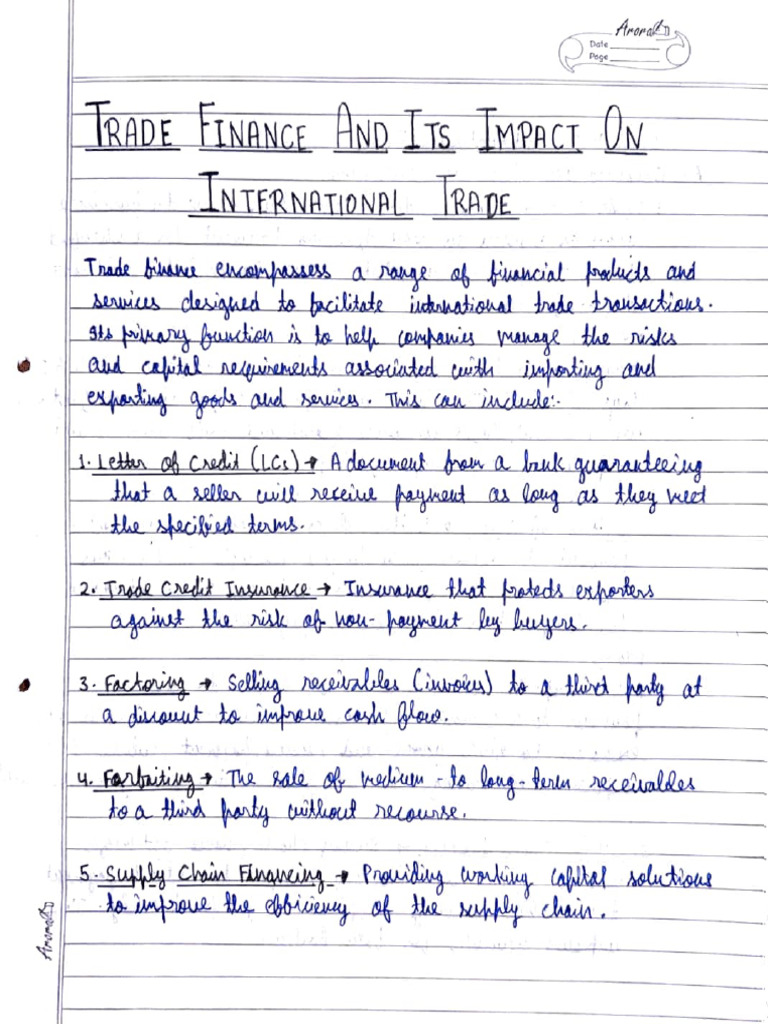 Date
Page
TRADE FINANCE AND ITS IMPACT ON
INTERNATIONAL TRADE
Trade finance encompassess a range of financial products and
services designed to facilitate international trade transactions.
Its primary function is to help companies manage the risks
and capital requirements associated with importing and
exporting goods and services. This can include:-
1. Letter of Credit (LCs) → A document from a bank guaranteeing
that a seller will receive payment as long as they meet
the specified terms.
2. Trade Credit Insurance → Insurance that protects exporters
against the risk of non-payment by buyers.
3. Factoring → Selling receivables (invoices) to a third party at
a discount to improve cash flow.
4. Forfaiting → The sale of medium-to long-term receivables
to a third party without recourse.
5. Supply Chain Financing → Providing working capital solutions
to improve the efficiency of the supply chain.